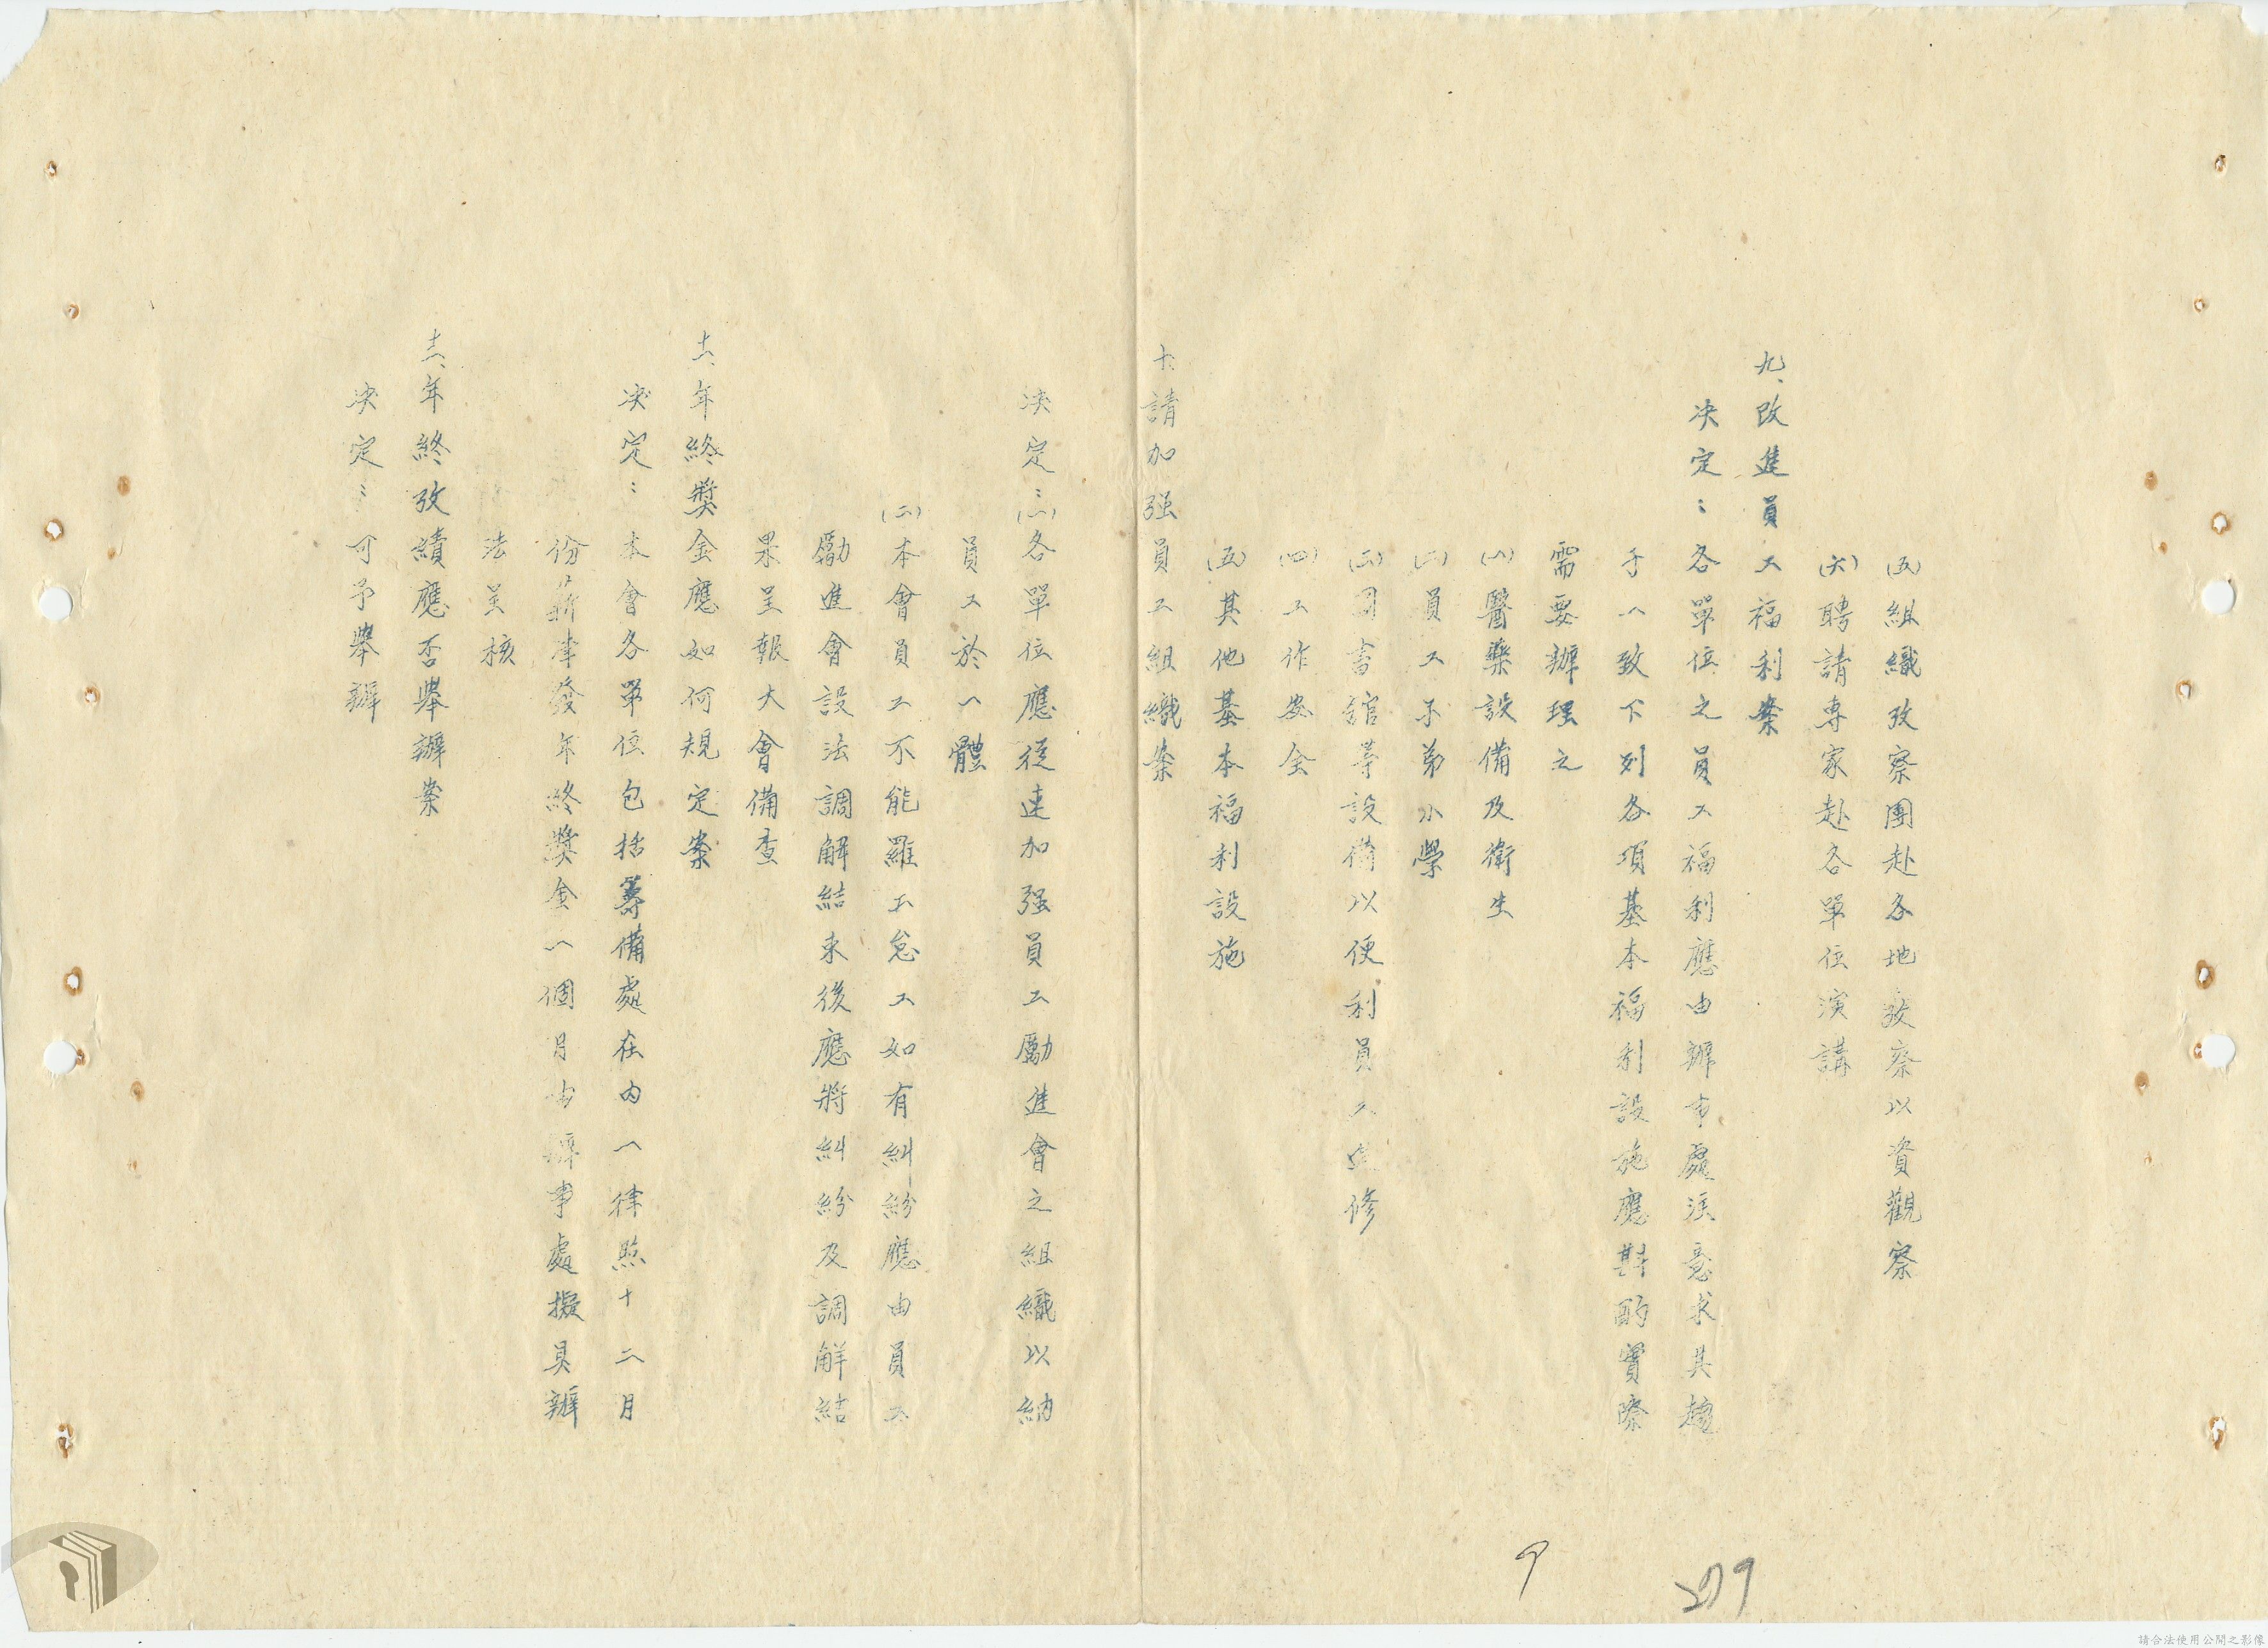 (五)組織攷察團赴各地攷察以資觀察
(六)聘請專家赴各單位演講
九、改進員工福利案
決定：各單位之員工福利應由辦事處注意求其趨
于一致下列各項基本福利設施應斟酌實際
需要辦理之
(一)醫藥設備及衛生
(二)員工子弟小學
(三)圖書館等設備以便利員工進修
(四)工作安全
(五)其他基本福利設施
十、請加强員工組織案
決定：(一)各單位應從速加强員工勵進會之組織以納
員工於一體
(二)本會員工不能罷工怠工如有糾紛應由員工
勵進會設法調解結束後應將糾紛及調解結
果呈報大會備查
十一、年終獎金應如何規定案
決定：本會各單位包括籌備處在內一律照十二月
份薪津發年終獎金一個月由辦事處擬具辦
法呈核
十二、年終攷績應否舉辦案
決定：可予舉辦
9
279
請合法使用公開之影像